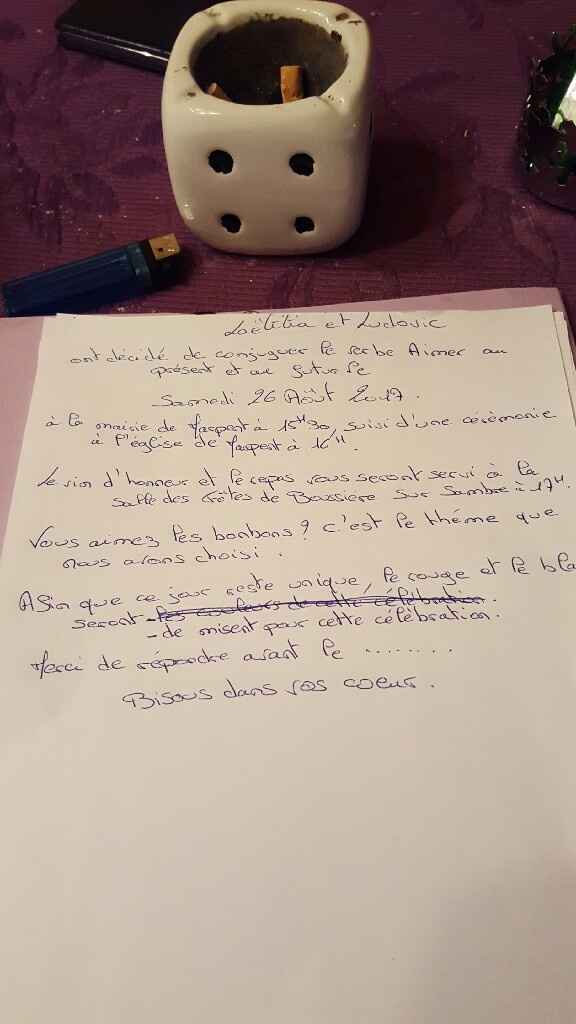 Loëtitia et Ludovic
ont décidé de conjuguer le verbe Aimer au
présent et au futur le
Samedi 26 Août 2017.
à la mairie de Jaspert à 15H30, suivi d'une cérémonie
à l'église de Jaspert à 16H.
Le vin d'honneur et le repas vous seront servi à la
salle des fêtes de Boussiere sur Sambre à 17H.
Vous aimez les bonbons? c'est le thème que
nous avons choisi.
Afin que ce jour reste unique, le rouge et le bla
seront - les couleurs de cette célébration.
- de misent pour cette célèbration.
Merci de répondre avant le ........
Bisous dans vos coeur.